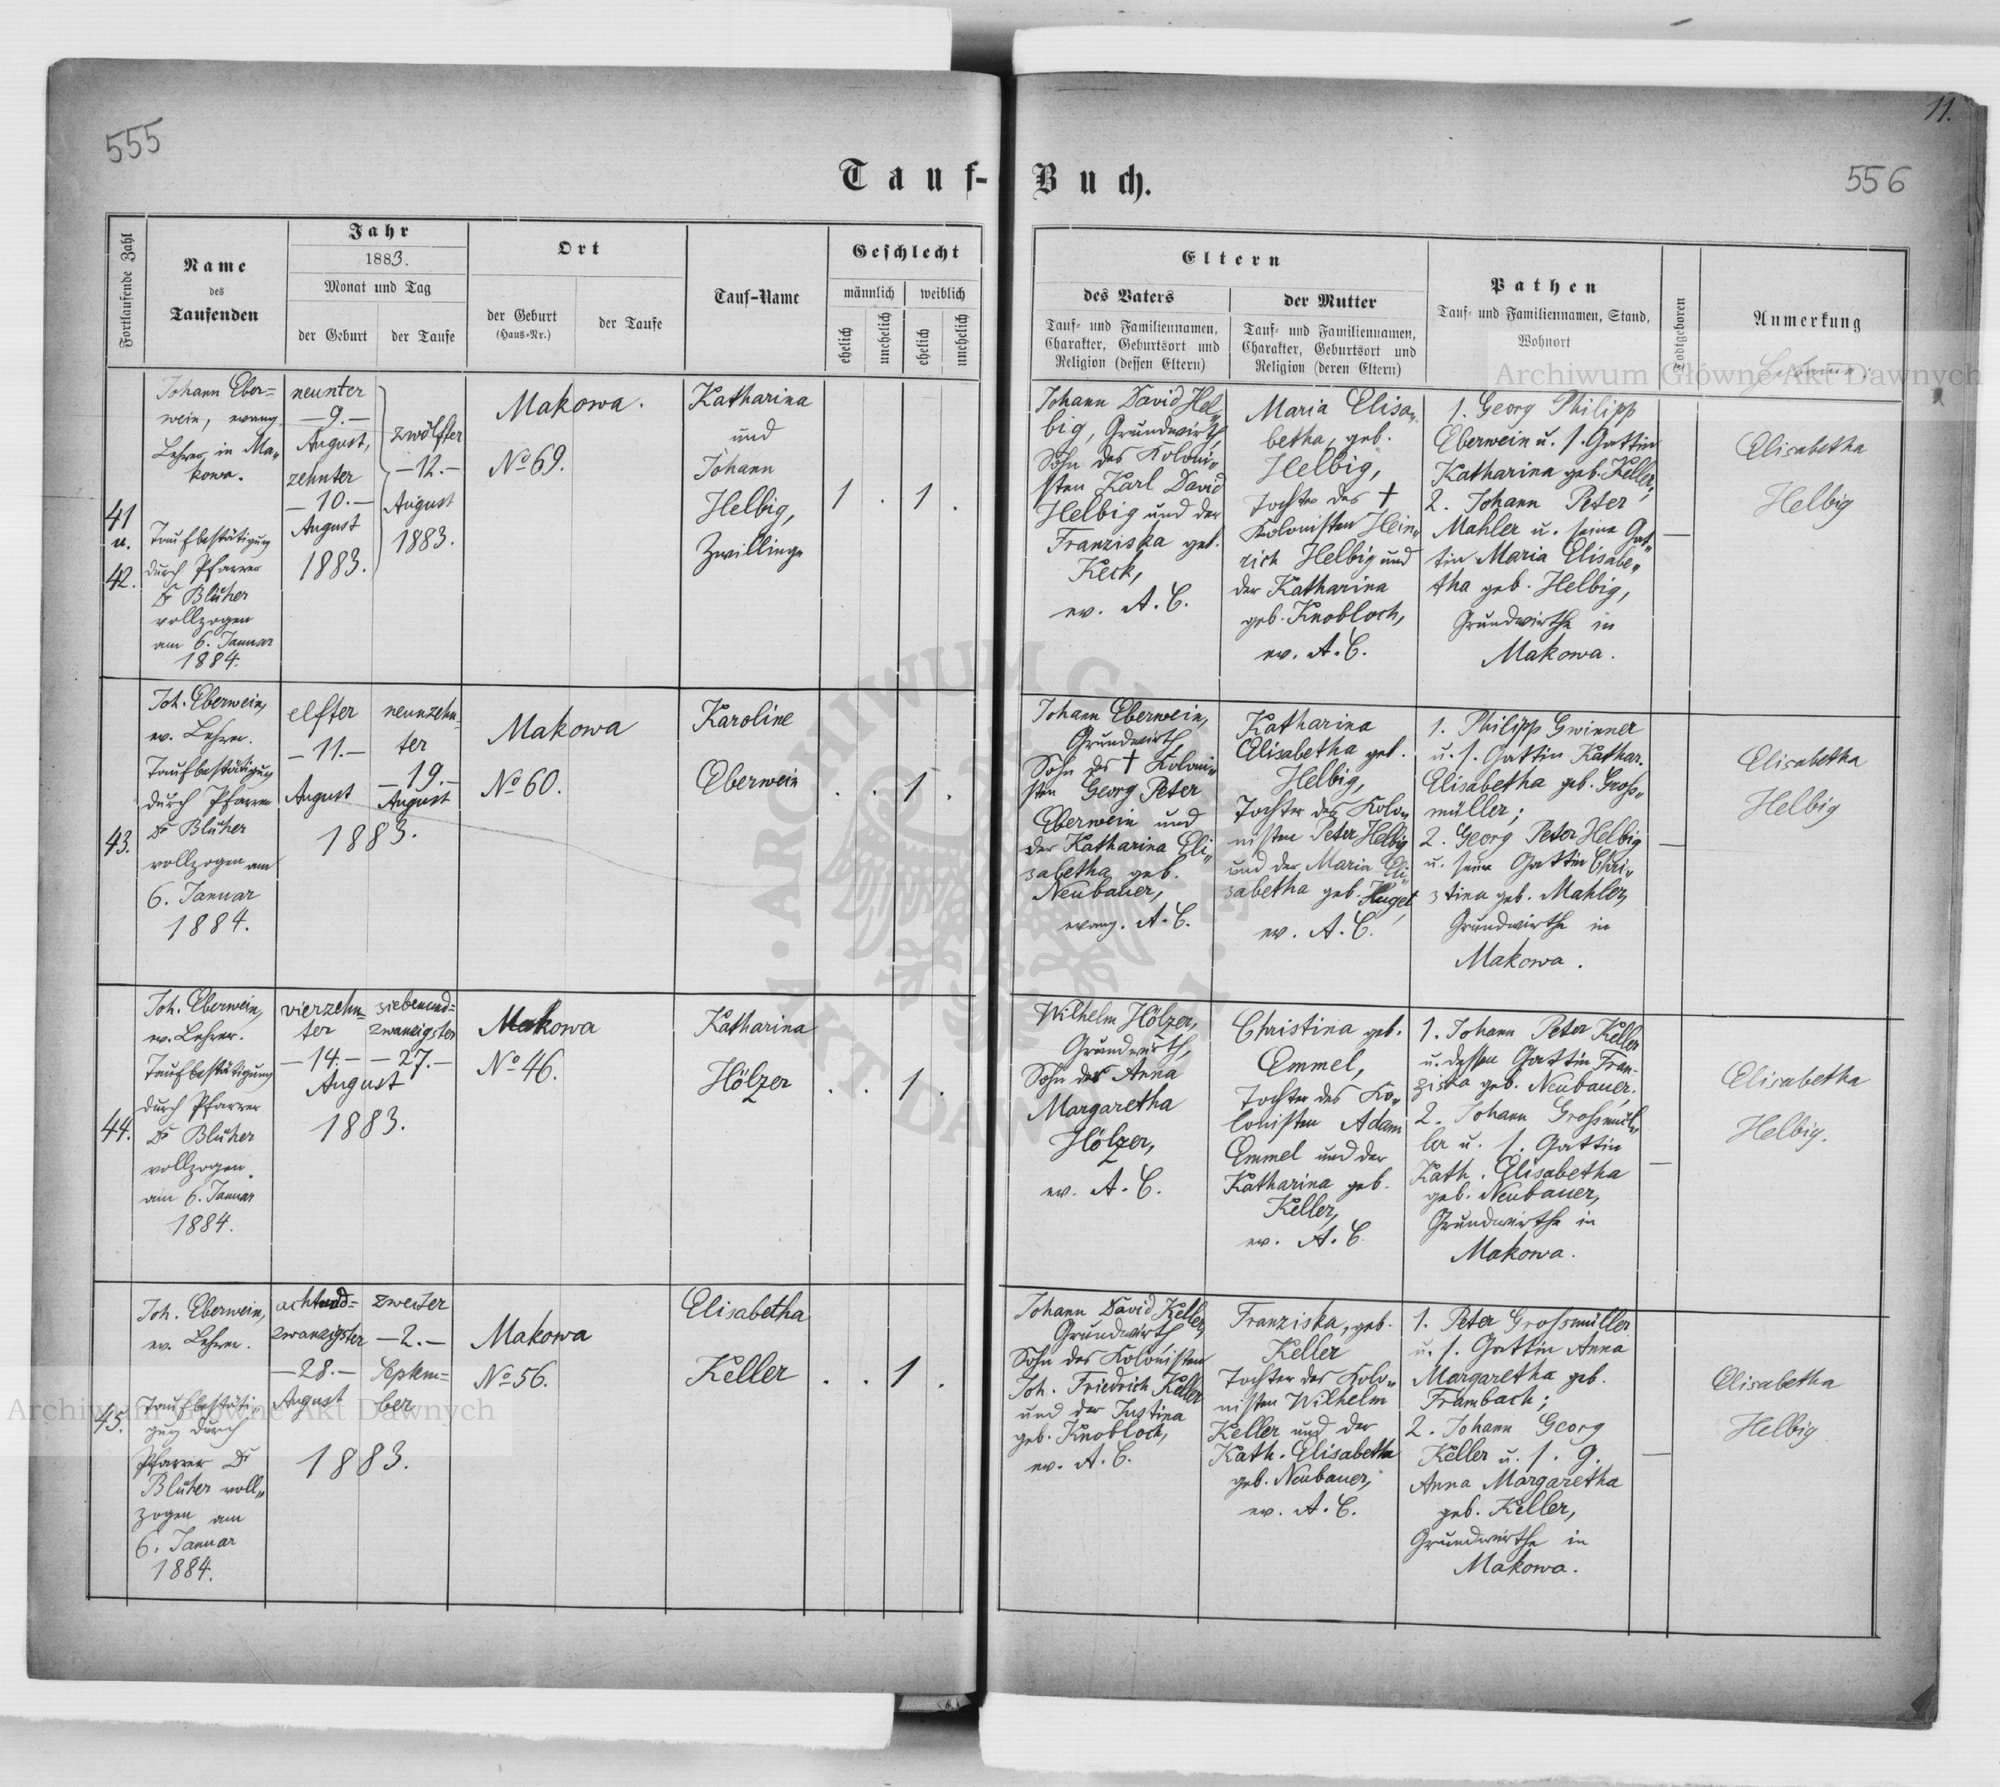 555
11.
556
Tauf-Buch.
Fortlaufende Zahl
Name
des
Taufenden
Jahr
1883.
Monat und Tag
der Geburt
der Taufe
Ort
der Geburt
(Haus-Nr.)
der Taufe
Tauf-Name
Geschlecht
männlich
weiblich
ehelich
unehelich
ehelich
unehelich
Eltern
des Vaters
Tauf- und Familiennamen,
Charakter, Geburtsort und
Religion (dessen Eltern)
der Mutter
Tauf- und Familiennamen,
Charakter, Geburtsort und
Religion (deren Eltern)
Pathen
Tauf- und Familiennamen, Stand,
Wohnort
Todtgeboren
Anmerkung
Archiwum Główne Akt Dawnych
41
u.
42.
Johann Eber=
wein, evang.
Lehrer in Ma„
kowa.
Taufbestätigung
durch Pfarrer
Dr Blüher
vollzogen
am 6. Januar
1884.
neunter
—9.—
August,
zehnter
—10.—
August
1883.
zwölfter
—12.—
August
1883.
Makowa.
No 69.
Katharina
und
Johann
Helbig,
Zwillinge
1 . 1 .
Johann David Hel„
big, Grundwirth,
Sohn des Koloni„
sten Karl David
Helbig und der
Franziska geb.
Keck,
ev. A. C.
Maria Elisa„
betha, geb.
Helbig,
Tochter des †
Kolonisten Hein„
rich Helbig und
der Katharina
geb. Knobloch,
ev. A. C.
1. Georg Philipp
Eberwein u. s. Gattin
Katharina geb. Keller;
2. Johann Peter
Mahler u. seine Gat„
tin Maria Elisabe„
tha geb. Helbig,
Grundwirthe in
Makowa.
—
Elisabetha
Helbig
43.
Joh. Eberwein,
ev. Lehrer.
Taufbestätigung
durch Pfarrer
Dr Blüher
vollzogen am
6. Januar
1884.
elfter
—11.—
August
neunzehn„
ter
—19.—
August
1883.
Makowa
No 60.
Karoline
Eberwein
. . 1 .
Johann Eberwein,
Grundwirth,
Sohn des † Koloni„
sten Georg Peter
Eberwein und
der Katharina Eli„
sabetha geb.
Neubauer,
evang. A. C.
Katharina
Elisabetha geb.
Helbig,
Tochter des Kolo„
nisten Peter Helbig
und der Maria Eli„
sabetha geb. Huget,
ev. A. C.
1. Philipp Gwinner
u. s. Gattin Kathar.
Elisabetha geb. Gross„
müller;
2. Georg Peter Helbig
u. seine Gattin Chri„
stina geb. Mahler,
Grundwirthe in
Makowa.
—
Elisabetha
Helbig
44.
Joh. Eberwein,
ev. Lehrer.
Taufbestätigung
durch Pfarrer
Dr Blüher
vollzogen
am 6. Januar
1884.
vierzehn„
ter
—14.—
siebenund=
zwanzigster
—27.—
August
1883.
Makowa
No 46.
Katharina
Hölzer
. . 1 .
Wilhelm Hölzer,
Grundwirth,
Sohn der Anna
Margaretha
Hölzer,
ev. A. C.
Christina geb.
Emmel,
Tochter des Ko„
lonisten Adam
Emmel und der
Katharina geb.
Keller,
ev. A. C.
1. Johann Peter Keller
u. dessen Gattin Fran-
ziska geb. Neubauer;
2. Johann Grossmül„
ler u. s. Gattin
Kath. Elisabetha
geb. Neubauer,
Grundwirthe in
Makowa.
—
Elisabetha
Helbig.
45.
Joh. Eberwein,
ev. Lehrer.
Taufbestäti„
gung durch
Pfarrer Dr
Blüher voll„
zogen am
6. Januar
1884.
achtund=
zwanzigster
—28.—
August
zweiter
—2.—
Septem=
ber
1883.
Makowa
No 56.
Elisabetha
Keller
. . 1 .
Johann David Keller,
Grundwirth
Sohn des Kolonisten
Joh. Friedrich Keller
und der Justina
geb. Knobloch,
ev. A. C.
Franziska, geb.
Keller
Tochter des Kolo„
nisten Wilhelm
Keller und der
Kath. Elisabetha
geb. Neubauer,
ev. A. C.
1. Peter Grossmüller
u. s. Gattin Anna
Margaretha geb.
Frambach;
2. Johann Georg
Keller u. s. G.
Anna Margaretha
geb. Keller,
Grundwirthe in
Makowa.
—
Elisabetha
Helbig
Archiwum Główne Akt Dawnych
ARCHIWUM GŁÓWNE AKT DAWNYCH